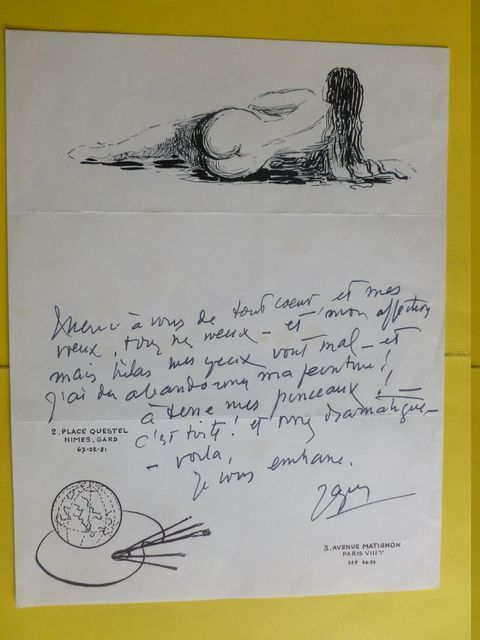 Merci à vous de tout coeur, et mes
vœux, tous mes vœux - et mon affection
mais hélas mes yeux vont mal - et
j'ai du abandonner ma peinture!
à terre mes pinceaux! -
c'est triste! et dramatique -
- voilà,
Je vous embrasse.
2. PLACE QUESTEL
NIMES. GARD
67-22-31
3. AVENUE MATIGNON
PARIS VIII
225 46-34